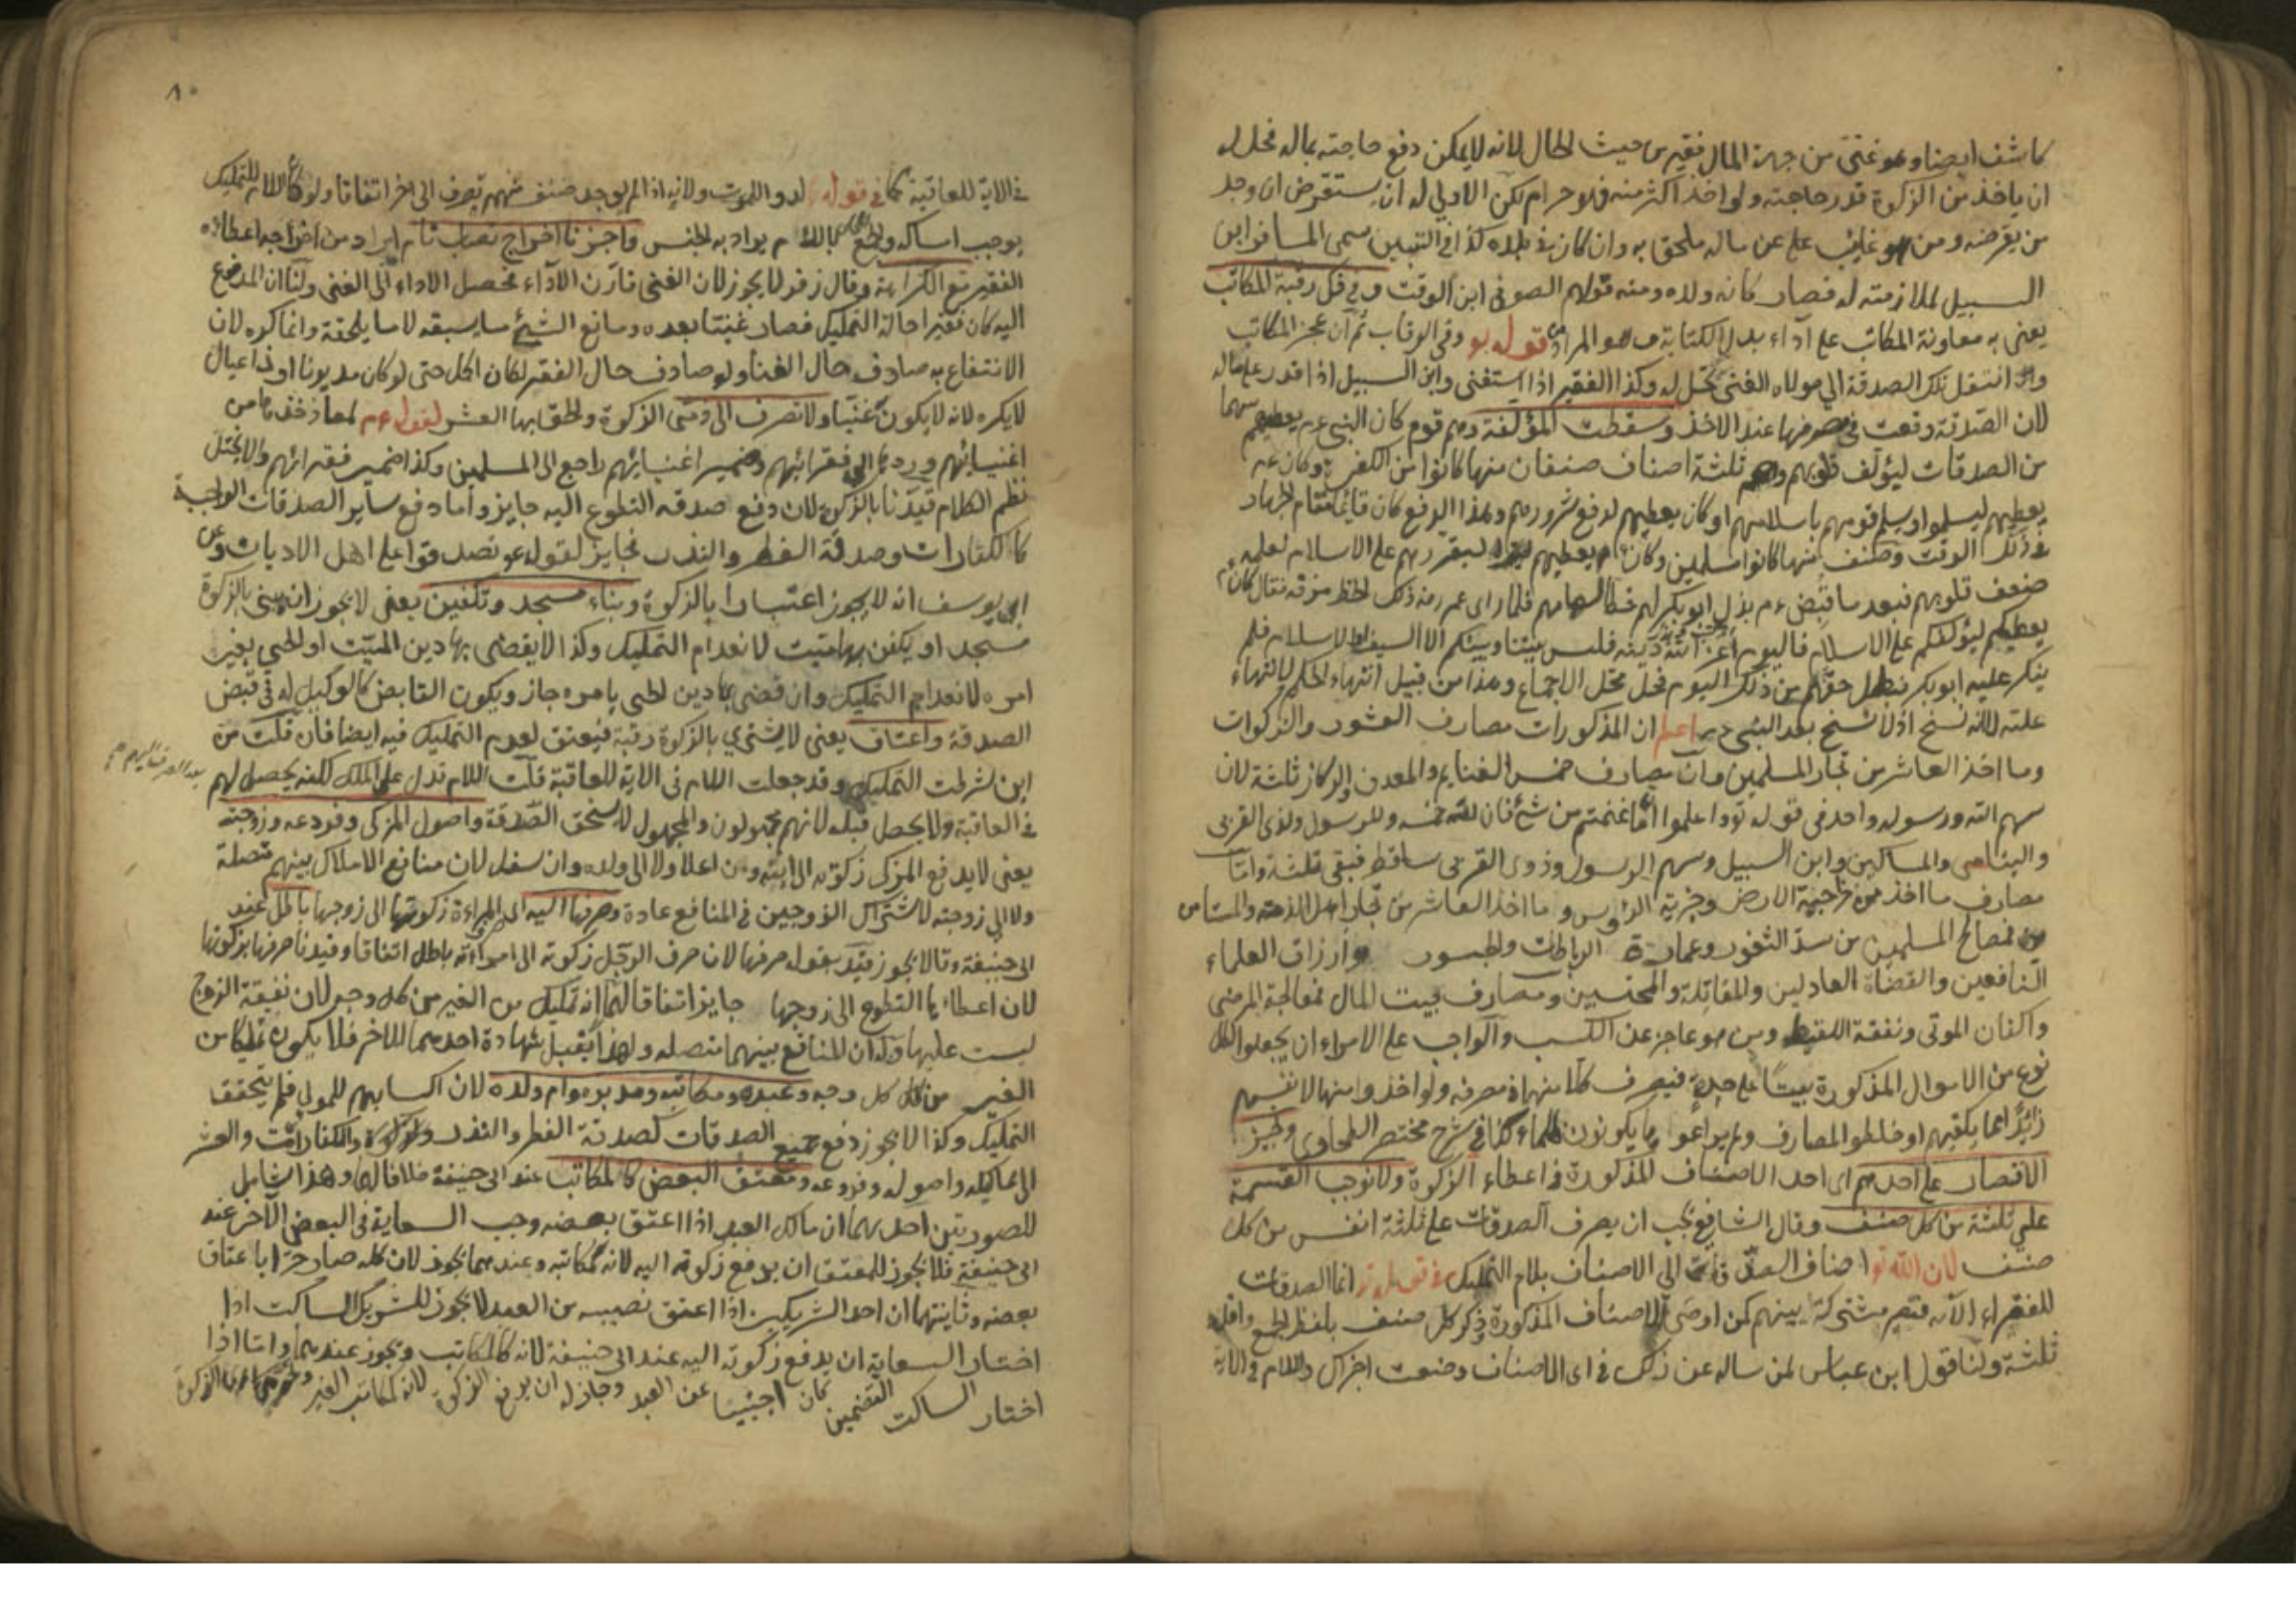 كاشف ايضا وهو غنى من جهة المال فقير من حيث الحال لانه لا يمكن دفع حاجته بماله فحل له
ان ياخذ من الزكوة قدر حاجته ولو اخذ اكثر منه فهو حرام لكن الاولى له ان يستقرض ان وجد
من يقرضه ومن هو غايب على عن ماله ملحق به وان كان في بلده كذا في التبيين سمى المسافر ابن
السبيل لملازمته له فصار كانه ولده ومنه قولهم الصوفى ابن الوقت وفي فك رقبة المكاتب
يعنى به معاونة المكاتب على آداء بدل الكتابة وهو المراد من قوله تع وفي الرقاب ثم ان عجز المكاتب
وانتقل تلك الصدقة الى مولاه الغنى تحل له وكذا الفقير اذا استغنى وابن السبيل اذا قدر على ماله
لان الصدقة وقعت في مصرفها عند الاخذ وسقطت المؤلفة وهم قوم كان النبي عم يعطيهم سهما
من الصدقات ليؤلف قلوبهم وهم ثلثة اصناف صنفان منها كانوا من الكفرة وكان عم
يعطيهم ليسلموا او يسلم قومهم باسلامهم او كان يعطيهم لدفع شرورهم وهذا الدفع كان قائما مقام الجهاد
في ذلك الوقت وصنف منها كانوا مسلمين وكان عم يعطيهم ليقررهم على الاسلام لعلمه
ضعف قلوبهم فبعد ما قبض عم بذل ابو بكر لهم خط السهامهم فلما راى عمر رضه ذلك الخط مزقه فقال كان عم
يعطيكم ليؤلفكم على الاسلام فاليوم اعز الله دينه فليس بيننا وبينكم الا السيف او الاسلام فلم
ينكر عليه ابو بكر فبطل حقهم من ذلك اليوم فحل محل الاجماع وهذا من قبيل انتهاء الحكم بانتهاء
علته لا انه نسخ اذ لا نسخ بعد النبى عم اعلم ان المذكورات مصارف العشور والزكوات
وما اخذ العاشر من تجار المسلمين وان مصارف خمس الغنايم والمعدن والركاز ثلثة لان
سهم الله ورسوله واحد في قوله تع واعلموا انما غنمتم من شئ فان لله خمسه وللرسول ولذى القربى
واليتامى والمساكين وابن السبيل وسهم الرسول وذوى القربى ساقط فبقى ثلثة واما
مصارف ما اخذ من خراجية الارض وجزية الرؤس وما اخذ العاشر من تجار اهل الذمة والمستامن
فمصالح المسلمين من سد الثغور وعمارة الرباطات والجسور وارزاق العلماء
النافعين والقضاة العادلين والمقاتلة والمحتسبين ومصارف بيت المال فمعالجة المرضى
واكفان الموتى ونفقة اللقيط ومن هو عاجز عن الكسب والواجب على الامراء ان يجعلوا لكل
نوع من الاموال المذكورة بيتا على حدة فيصرف كلا منها في مصرفه ولو اخذوا منها لانفسهم
زائدا عما يكفيهم او خلطوا المصارف ولم يراعوا يكونون ظلماء كذا في شرح مختصر الطحاوى ويجوز
الاقتصار على احدهم اى احد الاصناف المذكورة في اعطاء الزكوة ولا نوجب القسمة
على ثلثة من كل صنف وقال الشافعى يجب ان يصرف الصدقات على ثلثة انفس من كل
صنف لان الله تع اضاف الصدقات الى الاصناف بلام التمليك في قوله تع انما الصدقات
للفقراء الآية فتصير مشتركة بينهم كمن اوصى للاصناف المذكورة وذكر كل صنف بلفظ الجمع واقله
ثلثة ولنا قول ابن عباس لمن ساله عن ذلك في اى الاصناف وضعت اجزاك واللام في الاية
٨٠
في الاية للعاقبة كما في قوله لدوا للموت ولانه اذا لم يوجد صنف منهم يصرف الى آخر اتفاقا ولو كان اللام للتمليك
يوجب امساكه والجمع المحلى باللام يراد به الجنس واجزنا اخراج نصاب تام
الفقير مع الكراهة وقال زفر لا يجوز لان الغنى قارن الآداء فحصل الاداء الى الغنى ولنا ان المدفوع
اليه كان فقيرا حالة التمليك فصار غنيا بعده ومانع الشئ ما يسبقه لا ما يلحقه وانما كره لان
الانتفاع به صادف حال الغنا ولو صادف حال الفقر لكان اكمل حتى لو كان مديونا او ذا عيال
لا يكره لانه لا يكون غنيا ولا تصرف الى ذمى الزكوة والحق بها العشر لقوله عم لمعاذ خذها من
اغنيائهم وردها الى فقرائهم وضمير اغنيائهم راجع الى المسلمين وكذا ضمير فقرائهم والا يختل
نظم الكلام قيدنا بالزكوة لان دفع صدقة التطوع اليه جايز واما دفع ساير الصدقات الواجبة
كالكفارات وصدقة الفطر والنذر فجايز لقوله عم تصدقوا على اهل الاديان وعن
ابى يوسف انه لا يجوز اعتبارا بالزكوة وبناء مسجد وتكفين يعنى لا يجوز ان يبنى بالزكوة
مسجد او يكفن بها ميت لانعدام التمليك وكذا لا يقضى بها دين الميت او الحى بغير
امره لانعدام التمليك وان قضى بها دين الحى بامره جاز ويكون القابض كالوكيل له في قبض
الصدقة واعتاق يعنى لا يشترى بالزكوة رقبة فيعتق لعدم التمليك فيه ايضا فان قلت من
اين شرطت التمليك وقد جعلت اللام في الاية للعاقبة قلت اللام تدل على الملك لكنه يحصل لهم
بعد الصرف اليهم صح
في العاقبة ولا يحصل قبله لانهم مجهولون والمجهول لا يستحق الصدقة واصول المزكى وفروعه وزوجته
يعنى لا يدفع المزكى زكوته الى ابيه ومن اعلا ولا الى ولده وان سفل لان منافع الاملاك بينهم متصلة
ولا الى زوجته لاشتراك الزوجين في المنافع عادة وصرفها اليه اى المراءة زكوتها الى زوجها باطل عند
ابى حنيفة وقالا يجوز قيد بقوله صرفها لان صرف الرجل زكوته الى امرأته باطل اتفاقا وقيدنا صرفها بزكوتها
لان اعطاءها التطوع الى زوجها جايز اتفاقا لهما انه تمليك من الغير من كل وجه لان نفقة الزوج
ليست عليها وله ان المنافع بينهما متصلة ولهذا لم يقبل شهادة احدهما للاخر فلا يكون تمليكا من
الغير من كل وجه وعبده ومكاتبه ومدبره وام ولده لان اكسابهم للمولى فلم يتحقق
التمليك وكذا لا يجوز دفع جميع الصدقات كصدقة الفطر والنذر والكفارات والعشر
الى مماليكه واصوله وفروعه ومعتق البعض كالمكاتب عند ابى حنيفة خلافا لهما وهذا شامل
للصورتين احديهما ان مالك العبد اذا اعتق بعضه وجب السعاية في البعض الآخر عند
ابى حنيفة فلا يجوز للمعتق ان يدفع زكوته اليه لانه كمكاتبه وعندهما يجوز لان كله صار حرا باعتاق
بعضه وثانيتهما ان احد الشريكين اذا اعتق نصيبه من العبد لا يجوز للشريك الساكت اذا
اختار السعاية ان يدفع زكوته اليه عند ابى حنيفة لانه كالمكاتب ويجوز عندهما واما اذا
اختار الساكت التضمين كان اجنبيا عن العبد وجاز له ان يدفع الزكوة لانه كمكاتب الغير